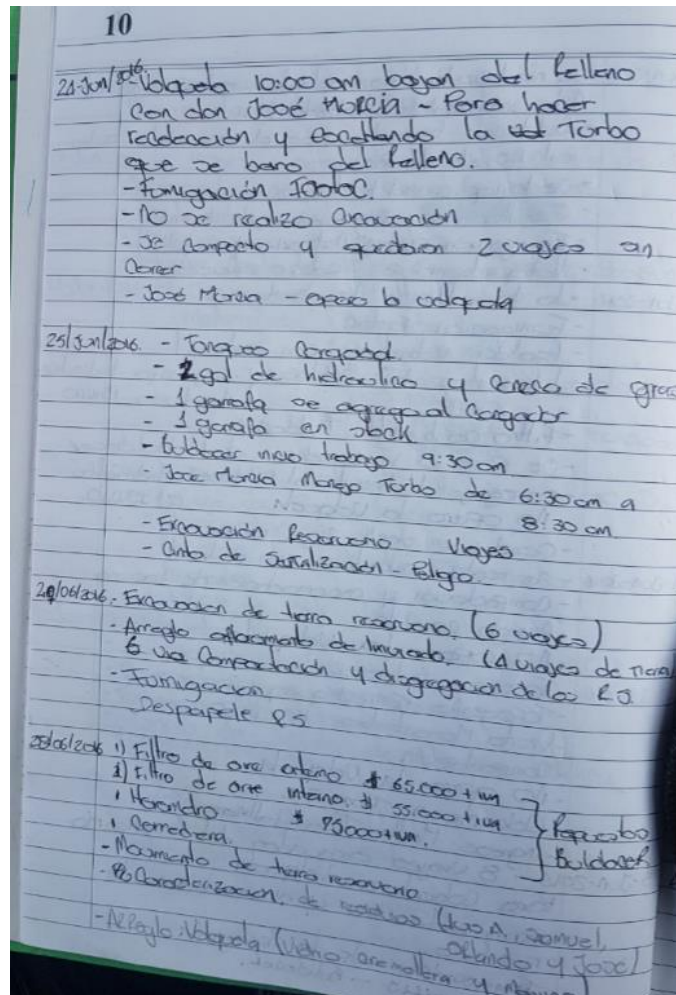 10
24-Jun/2016 - Volqueta 10:00 am bajan del Relleno
con don José Murcia - Para hacer
y la Turbo
que se baro del Relleno.
- Fumigación
- No se realizo excavación
- Se compacto y quedaron 2 viajes sin
- José Murcia - opero la volqueta
25/Jun/2016. - Tanqueo Cargador
- 2 gal de hidraulico y de
- 1 garrafa se agrego al Cargador
- 1 garrafa en stock
- Buldocer inicio trabajo 9:30 am
- Jose Murcia Manejo Turbo de 6:30 am a
8:30 am
- Excavación Reservorio Viajes
- Cinta de Señalización - Peligro
/06/2016. - Excavacion de tierra reservorio. (6 viajes)
- Arreglo afloramiento de lixiviado. (4 viajes de tierra)
6 via Compactación y disgregacion de los R.S.
- Fumigacion
Despapele RS
/06/2016 1) Filtro de aire externo $ 65.000 + iva
1) Filtro de aire interno. $ 55.000 + iva
$ 95000 + iva.
Repuestos
Buldocer
- Movimiento de tierra reservorio
- Caracterizacion. de residuos (Samuel,
Orlando y Jose)
- Arreglo Volqueta (Vidrio y